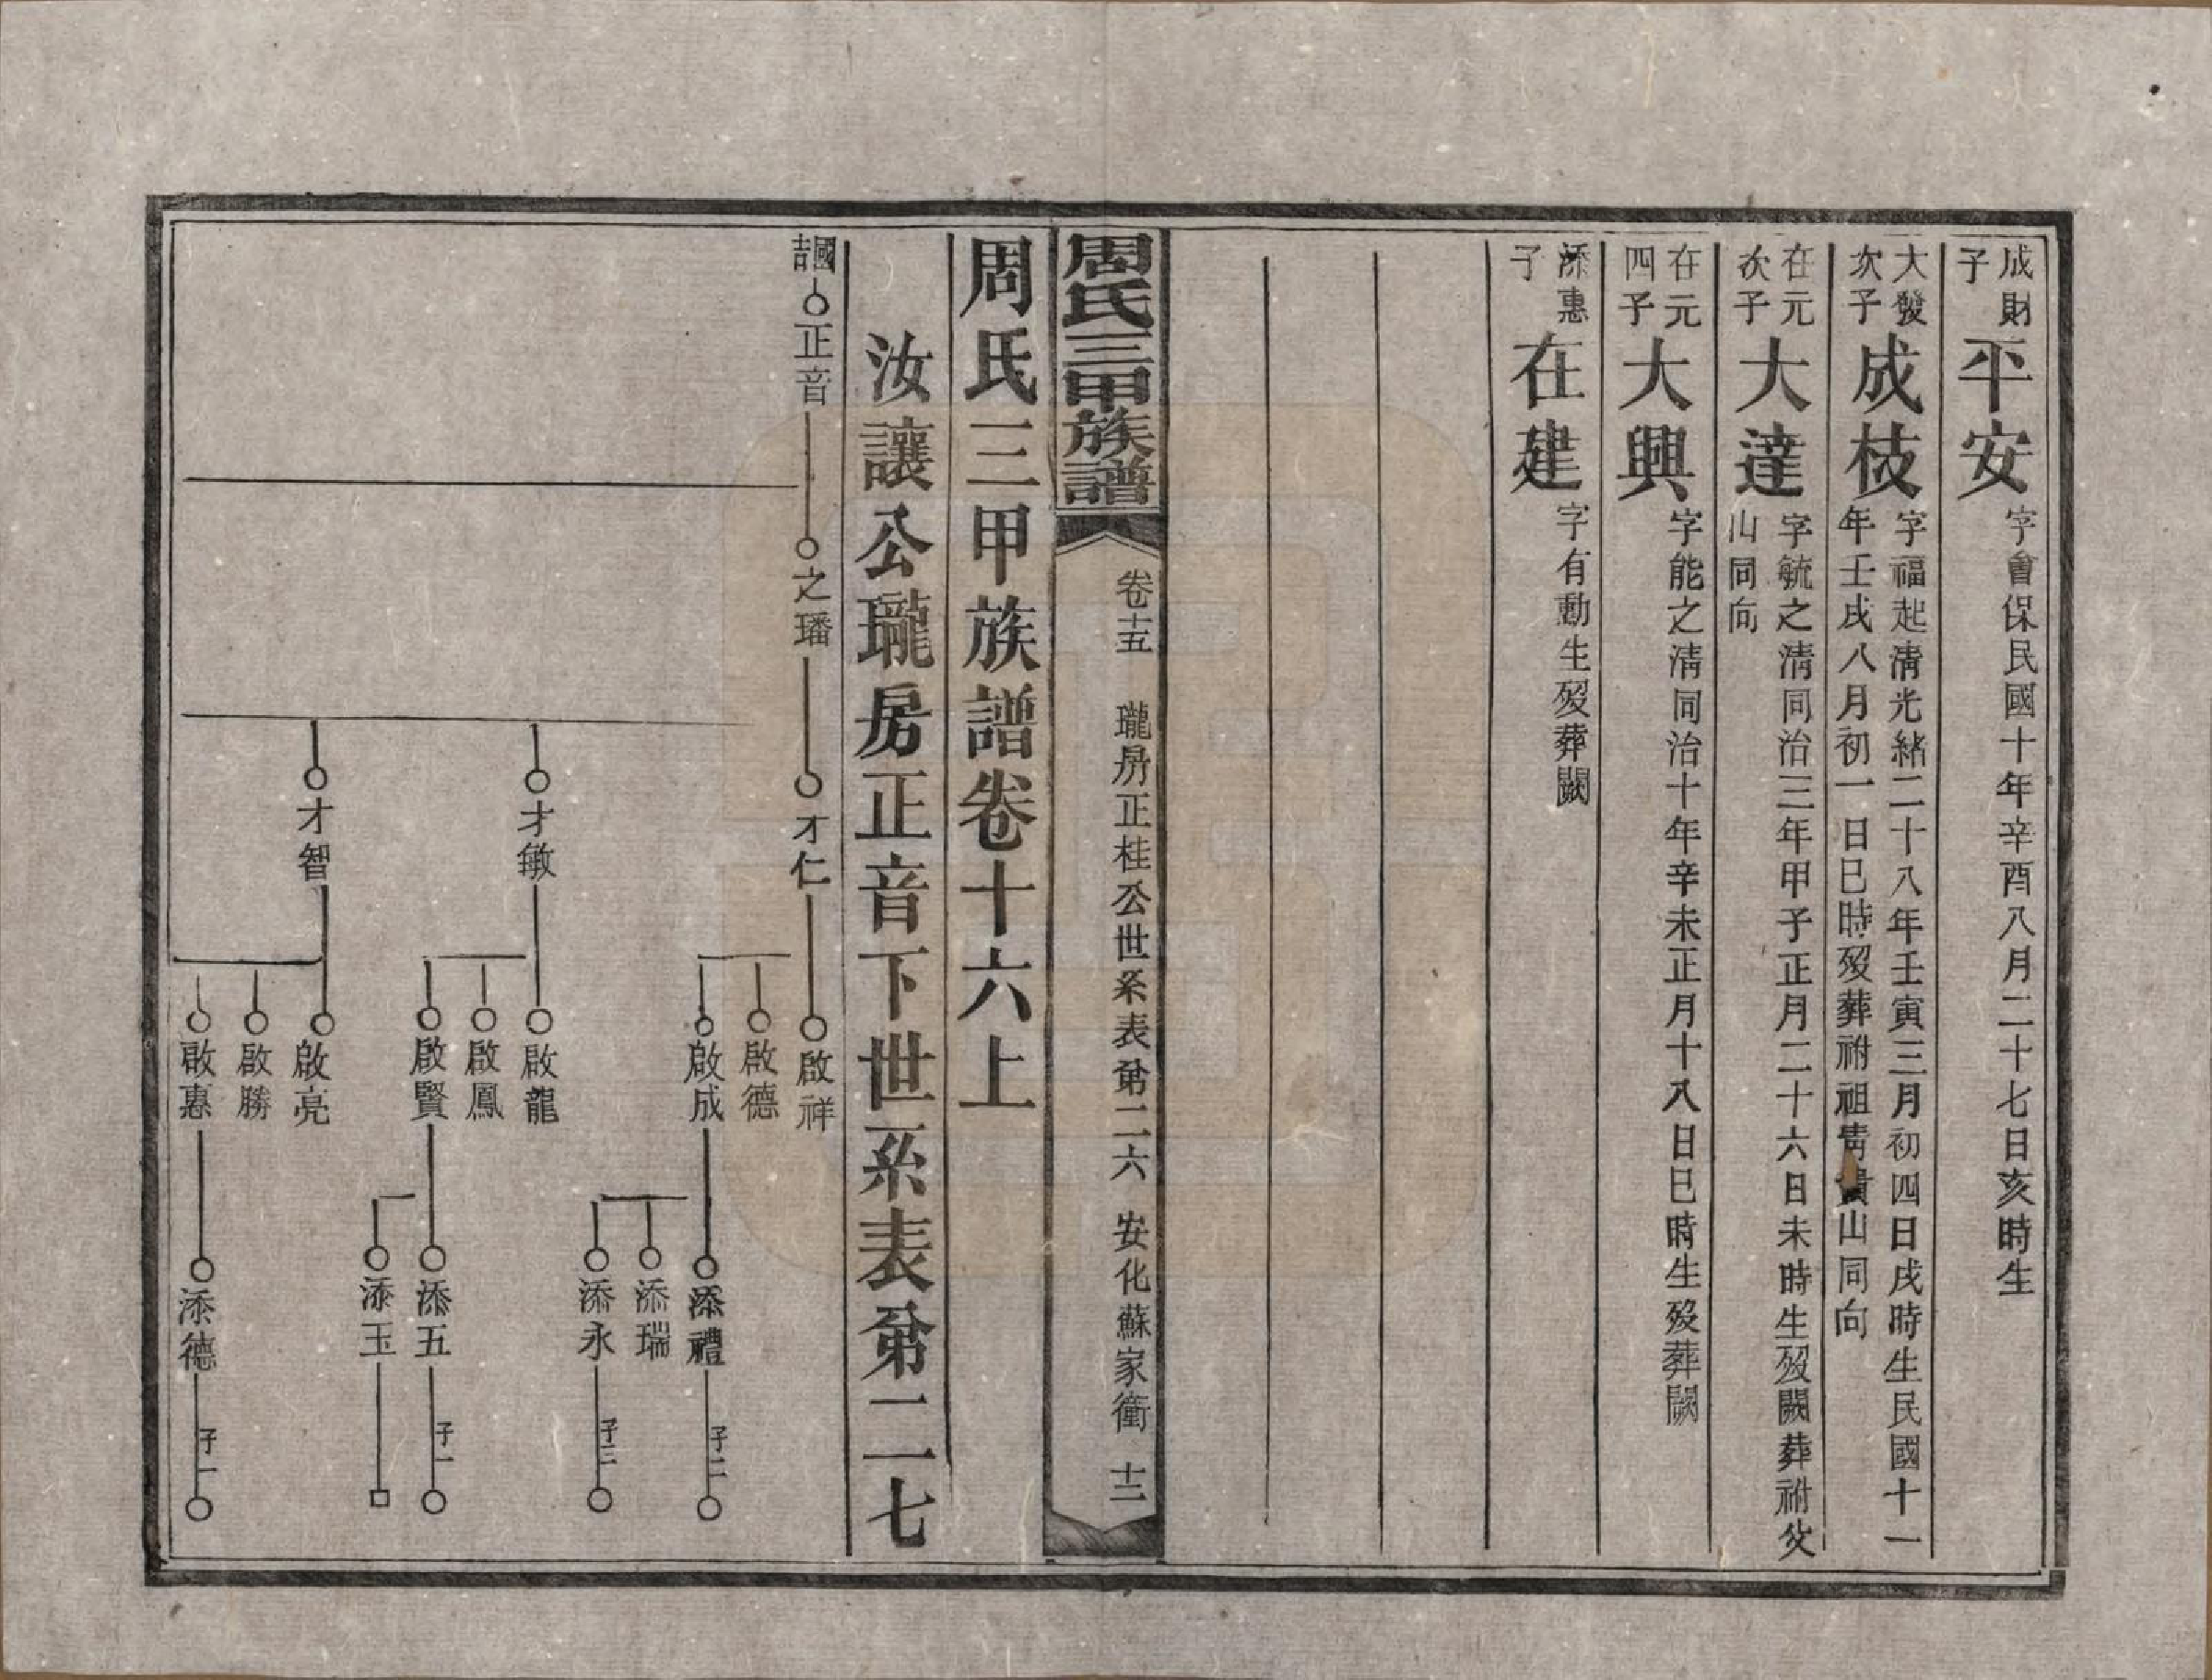 成財子 平安 字會保民國十年辛酉八月二十七日亥時生
大發次子 成枝 字福起清光緒二十八年壬寅三月初四日戌時生民國十一
年壬戌八月初一日巳時歿葬祔祖
山同向
在元次子 大達 字毓之清同治三年甲子正月二十六日未時生歿闕葬祔父
山同向
在元四子 大興 字能之清同治十年辛未正月十八日巳時生歿葬闕
添惠子 在建 字有動生歿葬闕
周氏三甲族譜 卷十五 瓏房正桂公世系表第二六 安化蘇家衝 十二
周氏三甲族譜卷十六上
汝讓公瓏房正音下世系表第二七
國喆 正音 之璠 才仁 啟祥
啟德
啟成 添禮 子二
添瑞
添永 子三
才敏 啟龍
啟鳳
啟賢 添五 子一
添玉
才智 啟亮
啟勝
啟惠 添德 子一